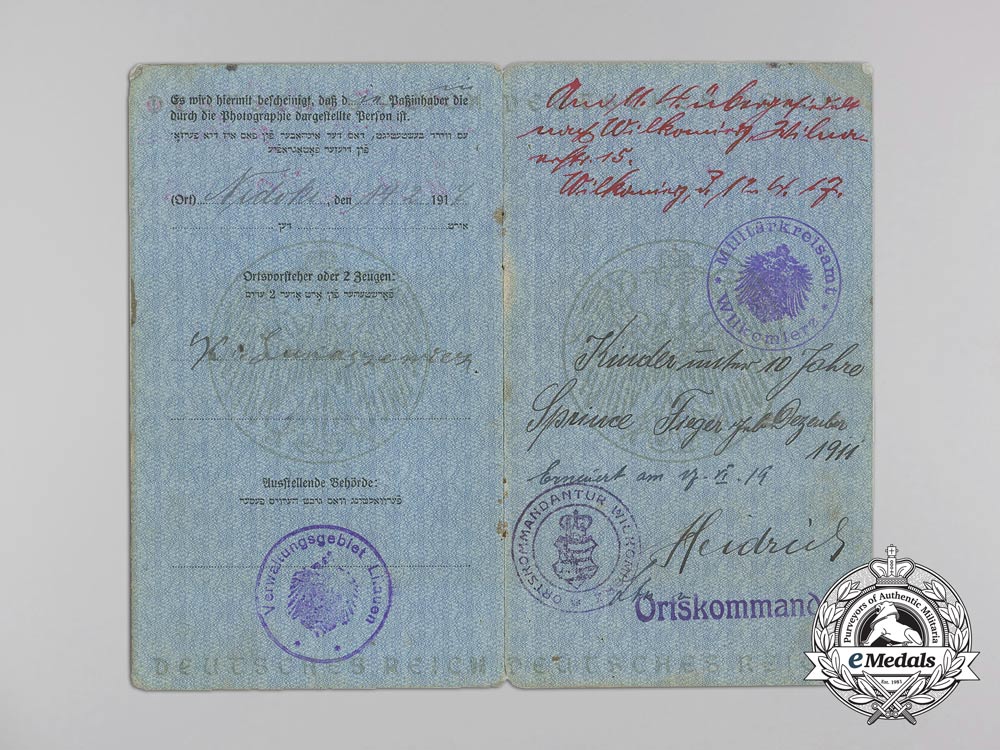 Es wird hiermit bescheinigt, daß d Paßinhaber die
durch die Photographie dargestellte Person ist.
עס ווירד בעשטעטיגט, דאס דער אינהאבער פון פאס איז דיא פערזאן
פון דיעזער פאטאגראפיע
(Ort) den 19 2 1917
ארט דען
Ortsvorsteher oder 2 Zeugen:
פארשטעהער פון ארט אדער 2 עדים
Ausstellende Behörde:
Verwaltungsgebiet Litauen
DEUTSCHES REICH
Am 11. 4. übergesiedelt
nach Wilkomierz, Wilna-
erstr. 15.
Wilkomierz, 12. 4. 17.
Militärkreisamt
Wilkomierz
Kinder unter 10 Jahre
Sprince Fieger geb. Dezember
1911
Erneuert am
ORTSKOMMANDANTUR
Heidrich
Ortskommand
DEUTSCHES REI
Purveyors of Authentic Militaria
eMedals
est. 1981